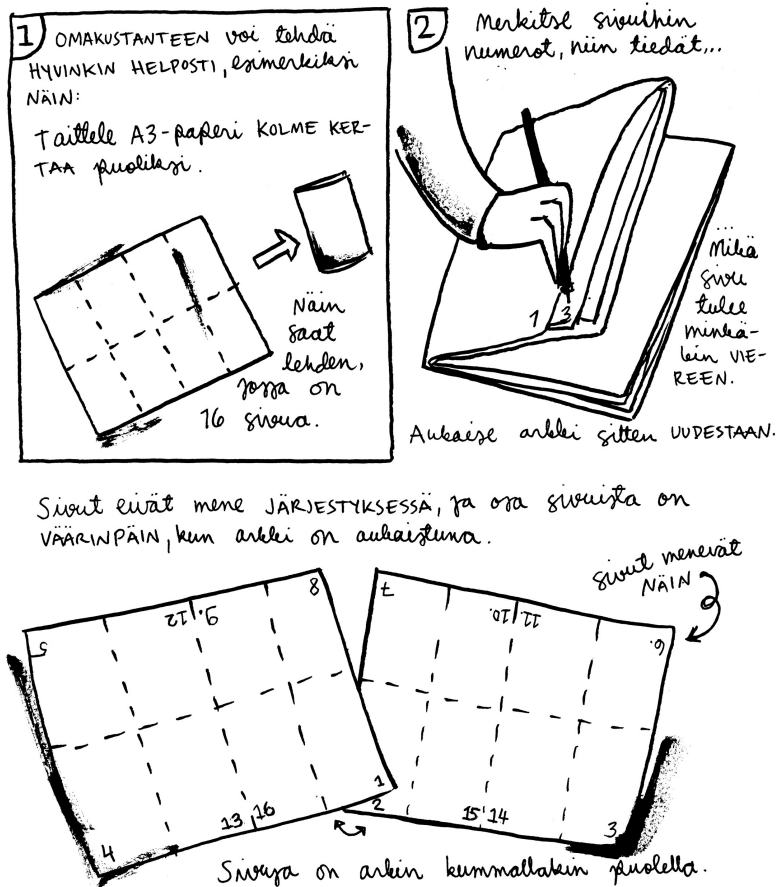 1 OMAKUSTANTEEN voi tehdä
HYVINKIN HELPOSTI, esimerkiksi
NÄIN:
Taittele A3-paperi KOLME KER-
TAA puoliksi.
Näin
saat
lehden,
jossa on
16 sivua.
2 Merkitse sivuihin
numerot, niin tiedät...
1 3
...mikä
sivu
tulee
minkä-
kin VIE-
REEN.
Aukaise arkki sitten UUDESTAAN.
Sivut eivät mene JÄRJESTYKSESSÄ, ja osa sivuista on
VÄÄRINPÄIN, kun arkki on aukaistuna.
sivut menevät
NÄIN
5 12 9. 8
4 13 16 1
7 10. 11 6.
2 15 14 3
Sivuja on arkin kummallakin puolella.